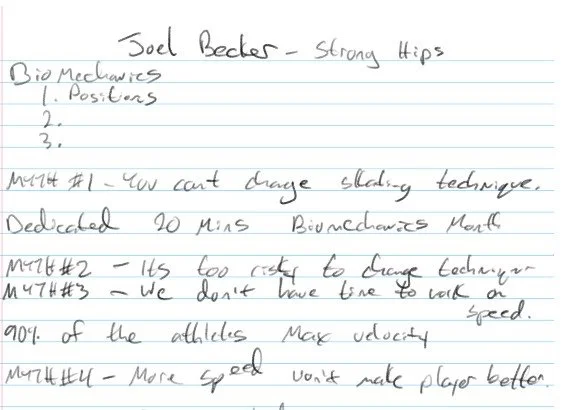 Joel Becker - Strong Hips
BioMechanics
1. Positions
2.
3.
MYTH #1 - You cant change skating technique.
Dedicated 20 Mins Biomechanics Month
MYTH #2 - Its too risky to change technique
MYTH #3 - We don't have time to work on
speed.
90% of the athletes Max velocity
MYTH #4 - More speed won't make player better.